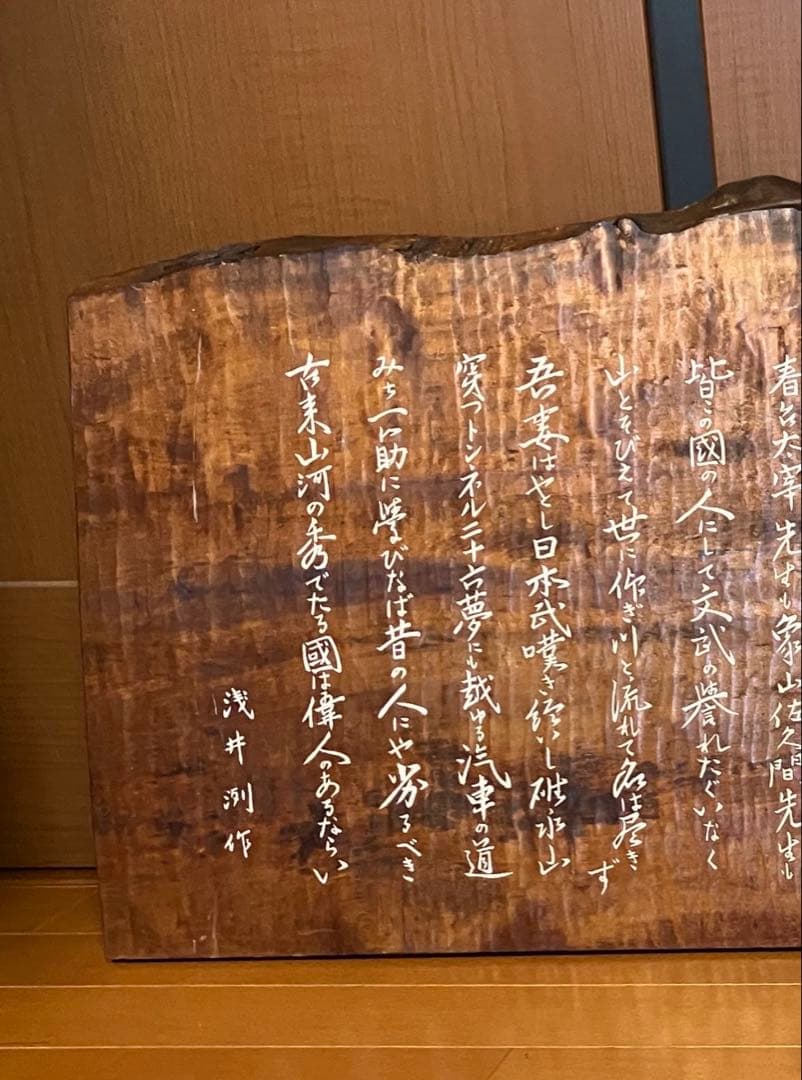 春台太宰先生も象山佐久間先生も
皆この國の人にして文武の誉れたぐいなく
山とそびえて世に仰ぎ川と流れて名は尽きず
吾妻はやとし日本武嘆き給いし碓氷山
穿つトンネル二十六夢にも越ゆる汽車の道
みち一筋に學びなば昔の人にや劣るべき
古来山河の秀でたる國は偉人のあるならい
浅井洌作